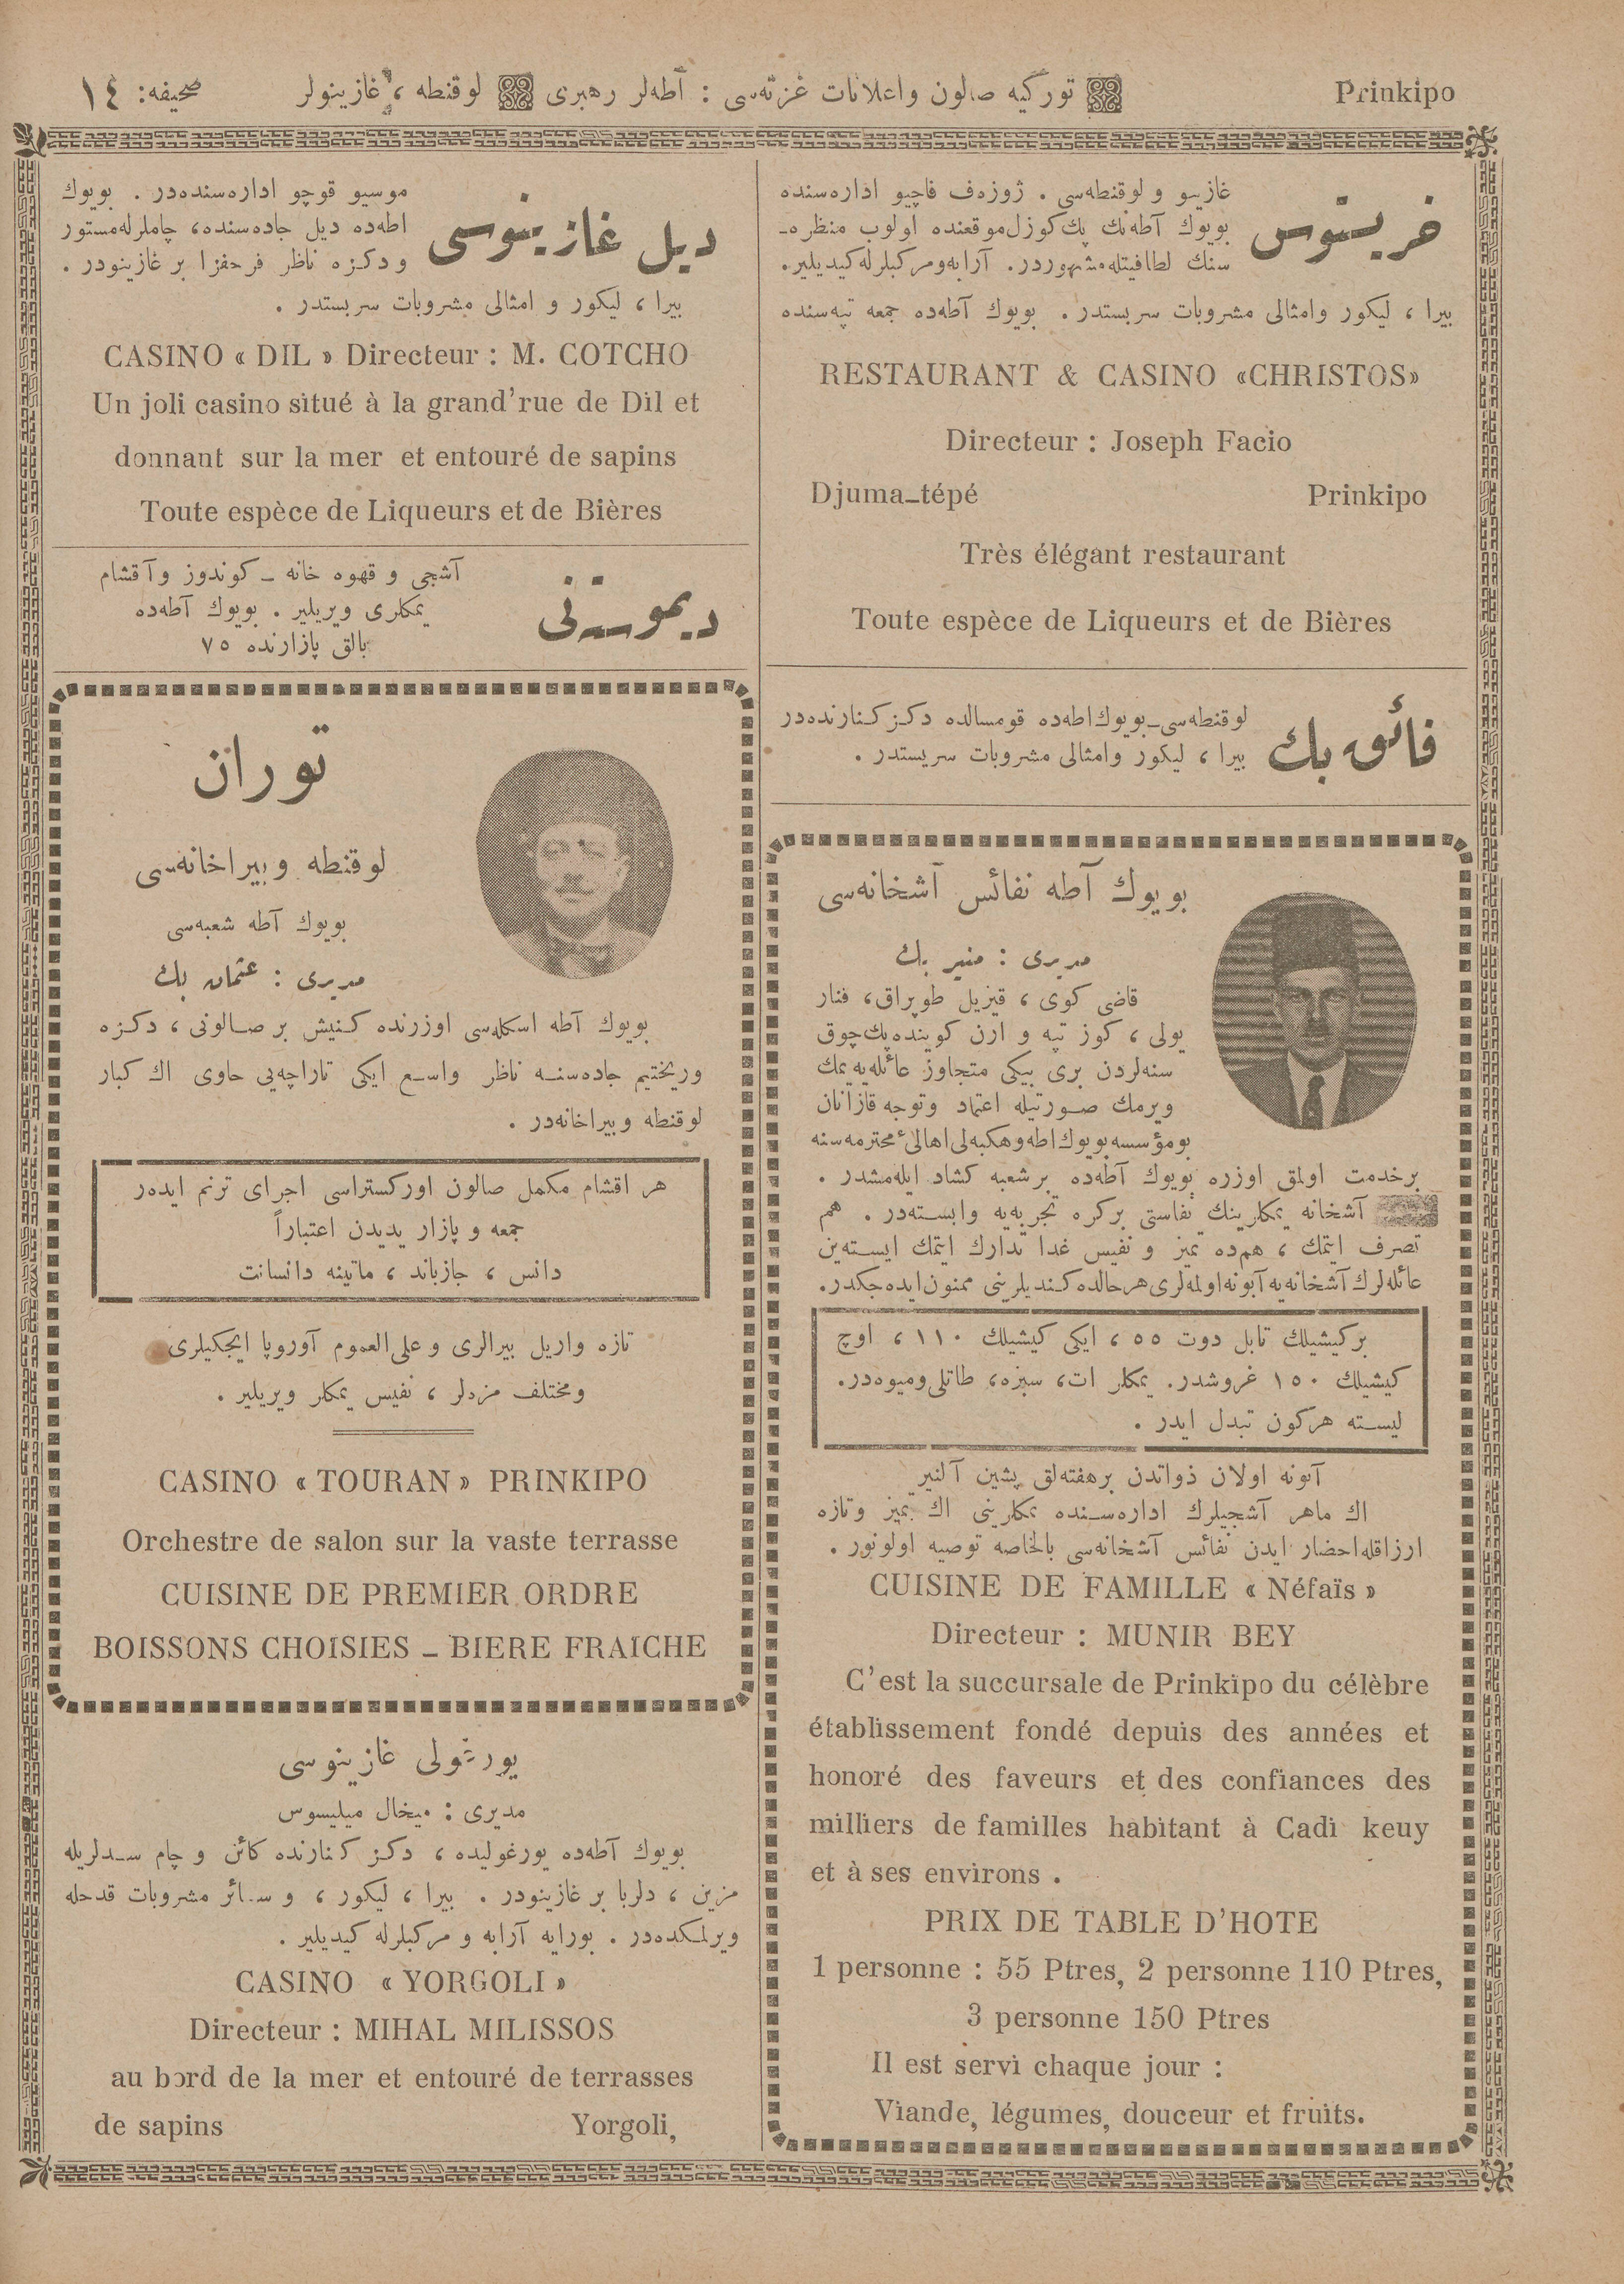 Prinkipo
توركیه صالون واعلانات غزته‌سی : آطه‌لر رهبری
لوقنطه ، غازینولر
صحیفه: ١٤
خریستوس
غازینو و لوقنطه‌سی . ژوزه‌ف فاچیو اداره‌سنده
بویوك آطه‌نك پك كوزل موقعنده اولوب منظره‌ـ
سنك لطافتیله مشهوردر. آرابه ومركبلرله كیدیلیر.
بیرا ، لیكور وامثالی مشروبات سربستدر . بویوك آطه‌ده جمعه تپه‌سنده
RESTAURANT & CASINO «CHRISTOS»
Directeur : Joseph Facio
Djuma-tépé Prinkipo
Très élégant restaurant
Toute espèce de Liqueurs et de Bières
فائق بك
لوقنطه‌سی ـ بویوك اطه‌ده قومسالده دكز كنارنده‌در
بیرا ، لیكور وامثالی مشروبات سربستدر .
بویوك آطه نفائس آشخانه‌سی
مدیری : منیر بك
قاضی كوی ، قیزیل طوپراق، فنار
یولی ، كوز تپه و ارن كوینده پك چوق
سنه‌لردن بری بیكی متجاوز عائله‌یه یمك
ویرمك صورتیله اعتماد وتوجه قازانان
بو مؤسسه بویوك اطه وهكبه‌لی اهالیٔ محترمه‌سنه
برخدمت اولمق اوزره بویوك آطه‌ده برشعبه كشاد ایله‌مشدر .
آشخانه یمكلرینك نفاستی بركره تجربه‌یه وابسته‌در . هم
تصرف ایتمك ، هم‌ده تمیز و نفیس غدا تدارك ایتمك ایسته‌ین
عائله‌لرك آشخانه‌یه آبونه اولمه‌لری هرحالده كندیلرینی ممنون ایده‌جكدر.
بركیشیلك تابل دوت ٥٥ ، ایكی كیشیلك ١١٠ ، اوچ
كیشیلك ١٥٠ غروشدر. یمكلر ات، سبزه، طاتلی ومیوه‌در.
لیسته هركون تبدل ایدر .
آبونه اولان ذواتدن برهفته‌لق پشین آلنیر
اك ماهر آشجیلرك اداره‌سنده یمكلرینی اك تمیز وتازه
ارزاقله احضار ایدن نفائس آشخانه‌سی بالخاصه توصیه اولونور .
CUISINE DE FAMILLE « Néfaïs »
Directeur : MUNIR BEY
C'est la succursale de Prinkipo du célèbre
établissement fondé depuis des années et
honoré des faveurs et des confiances des
milliers de familles habitant à Cadi keuy
et à ses environs .
PRIX DE TABLE D'HOTE
1 personne : 55 Ptres, 2 personne 110 Ptres,
3 personne 150 Ptres
Il est servi chaque jour :
Viande, légumes, douceur et fruits.
دیل غازینوسی
موسیو قوچو اداره‌سنده‌در . بویوك
اطه‌ده دیل جاده‌سنده، چاملرله مستور
ودكزه ناظر فرحفزا بر غازینودر .
بیرا ، لیكور و امثالی مشروبات سربستدر .
CASINO « DIL » Directeur : M. COTCHO
Un joli casino situé à la grand'rue de Dil et
donnant sur la mer et entouré de sapins
Toute espèce de Liqueurs et de Bières
دیموستنی
آشجی و قهوه خانه ـ كوندوز وآقشام
یمكلری ویریلیر . بویوك آطه‌ده
بالق پازارنده ٧٥
توران
لوقنطه وبیراخانه‌سی
بویوك آطه شعبه‌سی
مدیری : عثمان بك
بویوك آطه اسكله‌سی اوزرنده كنیش بر صالونی ، دكزه
وریختیم جاده‌سنه ناظر واسع ایكی تاراچه‌یی حاوی اك كبار
لوقنطه وبیراخانه‌در .
هر اقشام مكمل صالون اوركستراسی اجرای ترنم ایده‌ر
جمعه و پازار یدیدن اعتباراً
دانس ، جازباند ، ماتینه دانسانت
تازه واریل بیرالری وعلی العموم آوروپا ایچكیلری
ومختلف مزه‌لر ، نفیس یمكلر ویریلیر .
CASINO « TOURAN » PRINKIPO
Orchestre de salon sur la vaste terrasse
CUISINE DE PREMIER ORDRE
BOISSONS CHOISIES – BIERE FRAICHE
یورغولی غازینوسی
مدیری : میخال میلیسوس
بویوك آطه‌ده یورغولیده ، دكز كنارنده كائن و چام سدلریله
مزین ، دلربا بر غازینودر . بیرا ، لیكور ، و سائر مشروبات قدحله
ویرلمكده‌در . بورایه آرابه و مركبلرله كیدیلیر .
CASINO « YORGOLI »
Directeur : MIHAL MILISSOS
au bord de la mer et entouré de terrasses
de sapins Yorgoli,